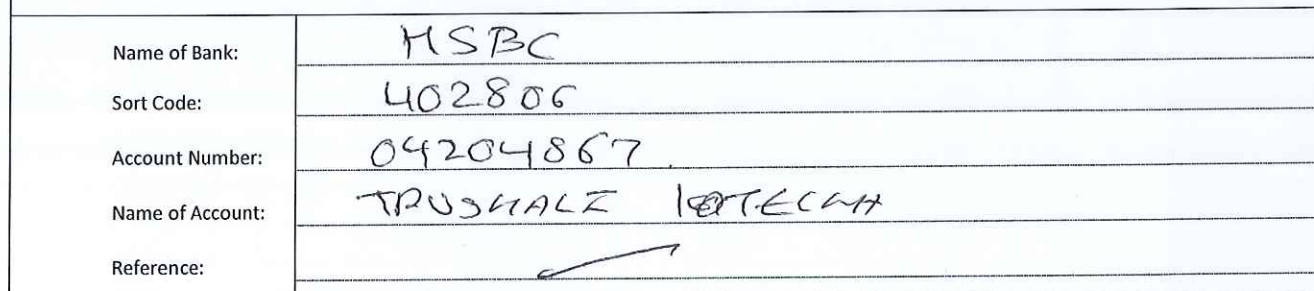 Name of Bank: HSBC
Sort Code: 402806
Account Number: 04204867
Name of Account: TRUSHALI KOTECHA
Reference: